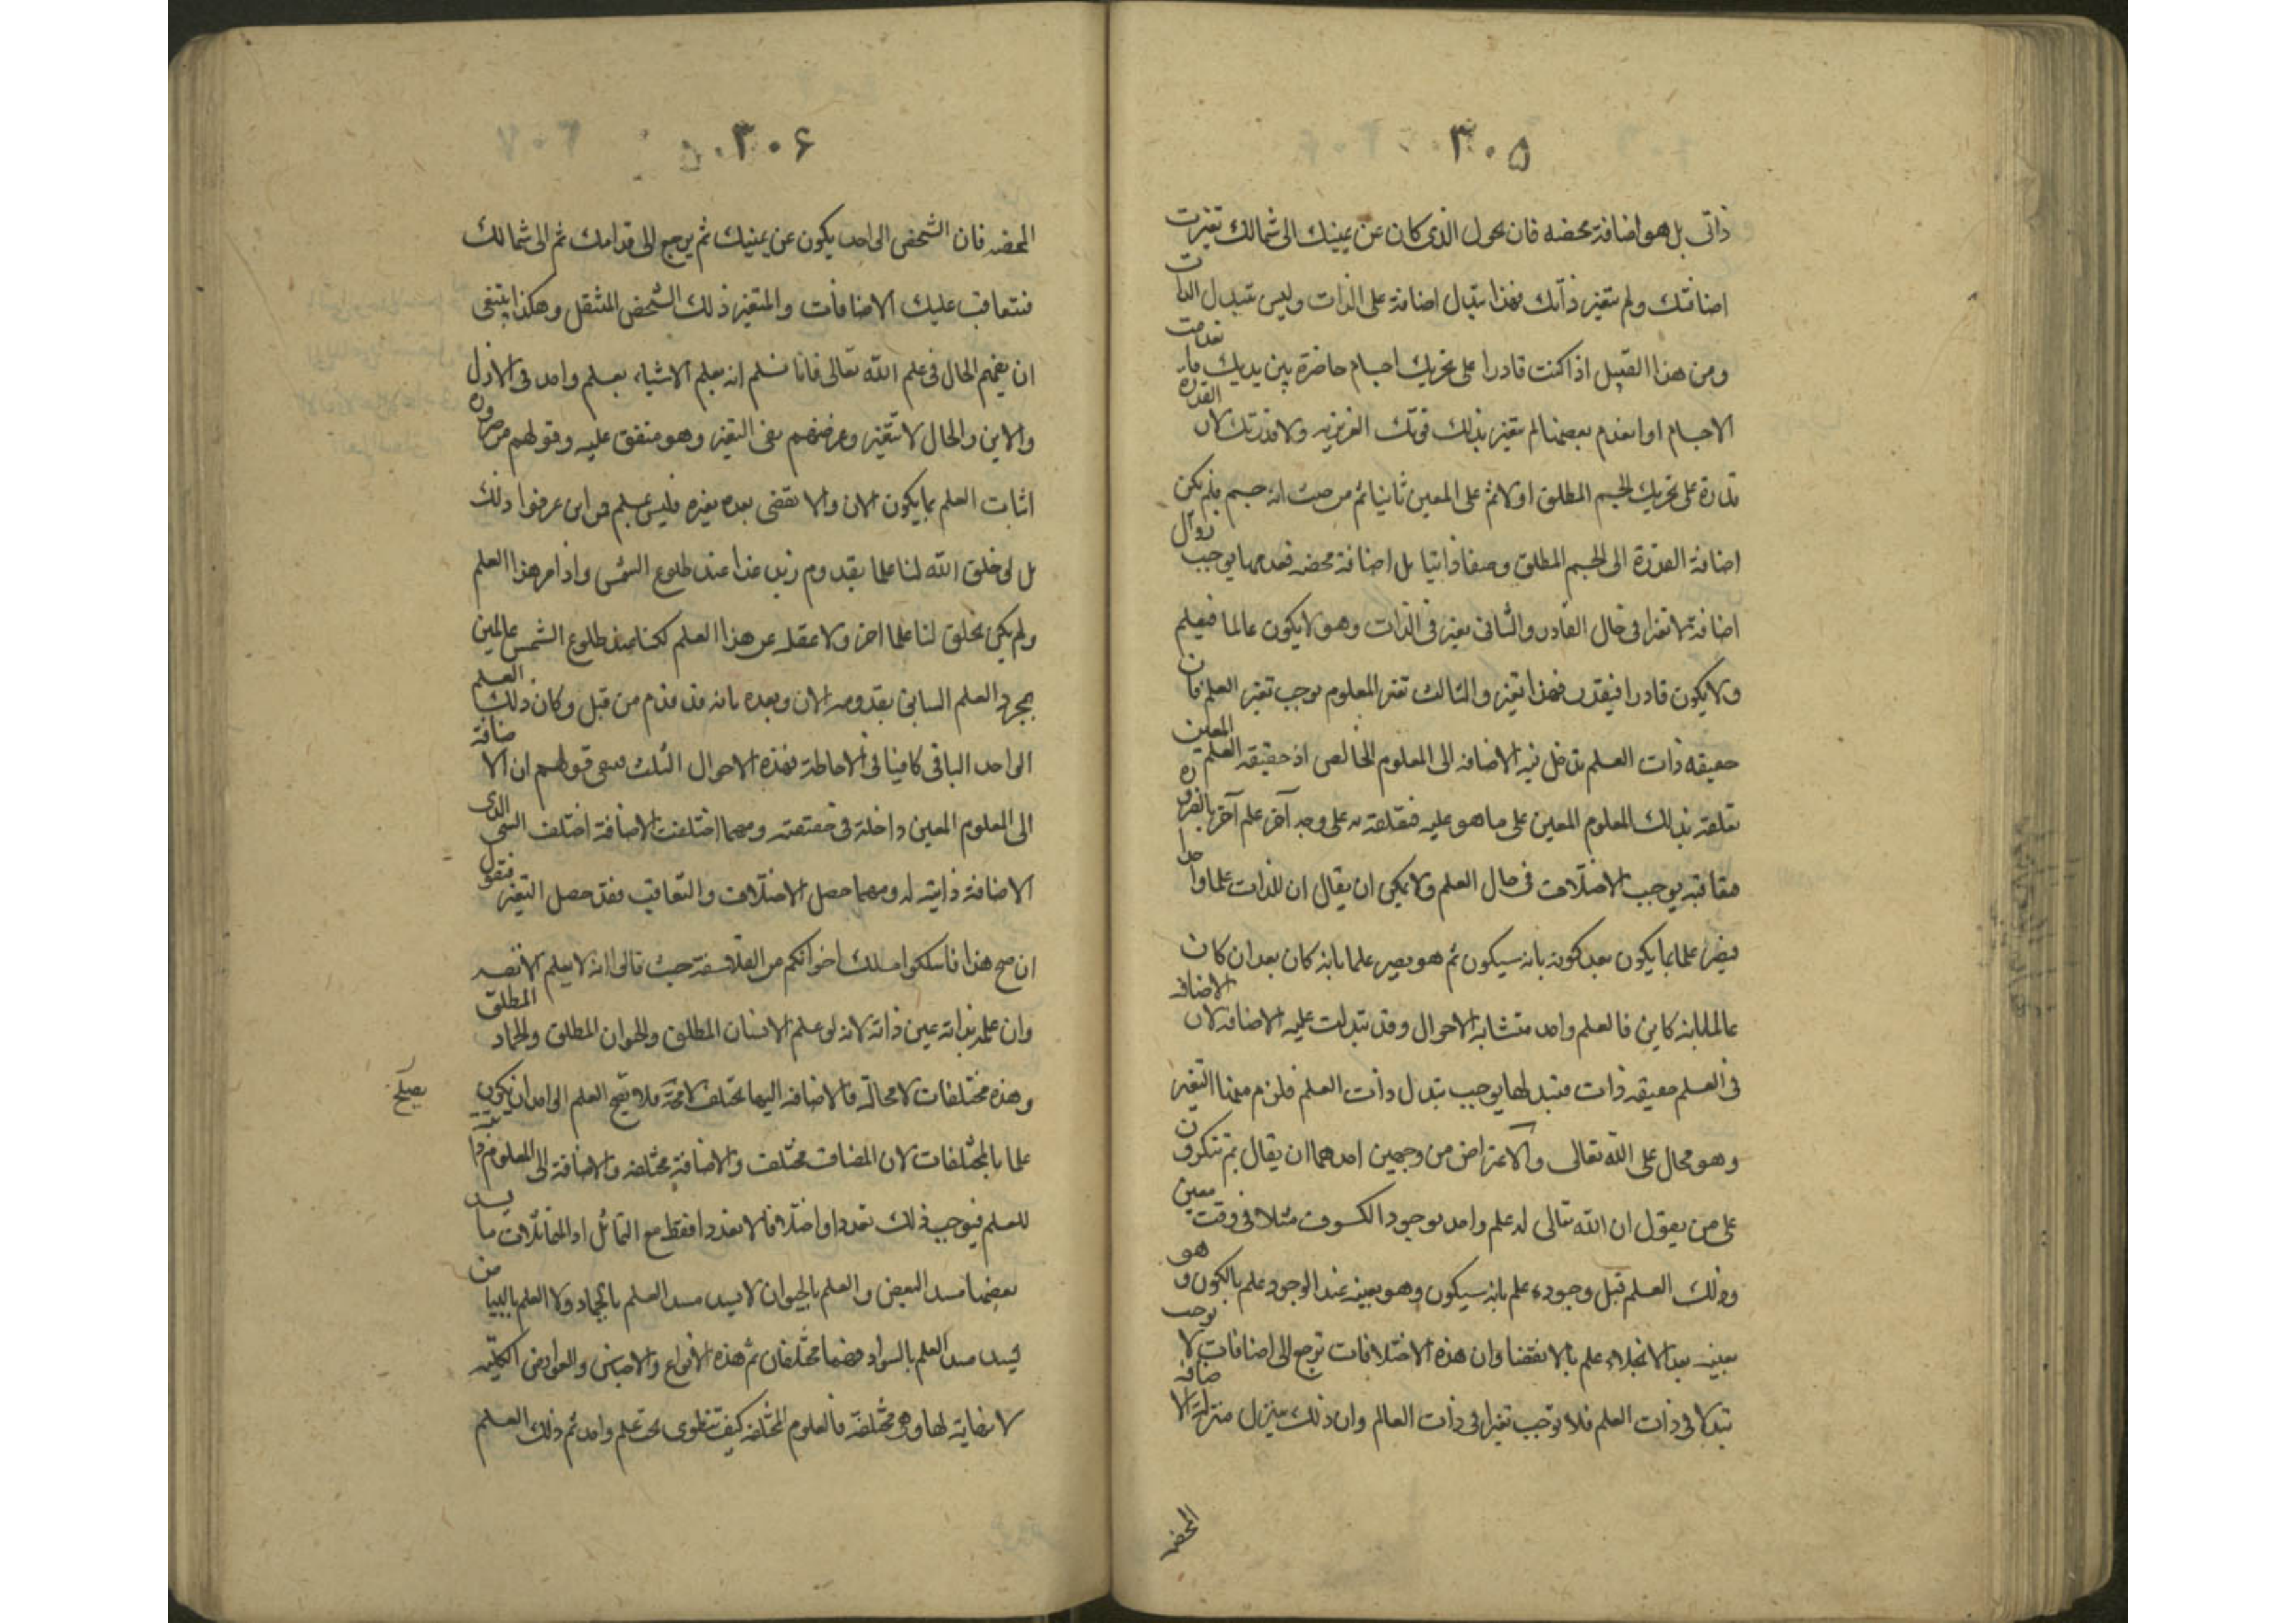 ۳۰۵
ذاتى بل هو اضافة محضه فان تحول الذى كان عن يمينك الى شمالك تغيرت
اضافتك ولم يتغير ذاتك فهذا تبدل اضافة على الذات وليس تتبدل الذات
ومن هذا القبيل اذا كنت قادرا على تحريك اجسام حاضرة بين يديك فانعدمت
الاجسام او انعدم بعضها لم يتغير بذلك قوتك الغريزيه ولا قدرتك لان القدرة
قدرة على تحريك الجسم المطلق اولا ثم على المعين ثانيا ثم من حيث انه جسم فلم يكن
اضافة القدرة الى الجسم المطلق وصفا ذاتيا بل اضافة محضه فعدمها يوجب زوال
اضافة لا تغيرا فى حال القادر والثانى تغير فى الذات وهو لا يكون عالما فيعلم
ولا يكون قادرا فيقدر فهذا تغير والثالث تغير المعلوم يوجب تغير العلم فان
حقيقه ذات العلم تدخل فيه الاضافه الى المعلوم الخالص اذ حقيقه العلم المعين
تعلقه بذلك المعلوم المعين على ما هو عليه فتعلقه به على وجه آخر علم آخر بالضروره
فتعاقبه يوجب الاختلاف فى حال العلم ولا يمكن ان يقال ان للذات علما واحدا
فيصير علما بما يكون بعد كونه بانه سيكون ثم هو يصير علما بانه كان بعد ان كان
عالما بانه كاين فالعلم واحد متشابه الاحوال وقد تبدلت عليه الاضافه لان الاضافه
فى العلم حقيقه ذات فتبدلها يوجب تبدل ذات العلم فلزم منها التغير
وهو محال على الله تعالى والاعتراض من وجهين احدهما ان يقال بم تنكرون
على من يقول ان الله تعالى له علم واحد بوجود الكسوف مثلا فى وقت معين
وذلك العلم قبل وجوده علم بانه سيكون وهو بعينه عند الوجود علم بالكون وهو
بعينه بعد الانجلاء علم بالانقضا وان هذه الاختلافات ترجع الى اضافات لا توجب
تبدلا فى ذات العلم فلا توجب تغيرا فى ذات العالم وان ذلك ينزل منزلة الاضافه
المحضه
۳۰۶
المحضه فان الشخص الواحد يكون عن يمينك ثم يرجع الى قدامك ثم الى شمالك
فتتعاقب عليك الاضافات والمتغير ذلك الشخص المنتقل وهكذا ينبغى
ان يفهم الحال فى علم الله تعالى فانا نسلم انه يعلم الاشياء بعلم واحد فى الازل
والابد والحال لا يتغير وغرضهم نفى التغير وهو متفق عليه وقولهم من ضروره
اثبات العلم بما يكون الان والانقضى بعده تغيره فليس بمسلم فمن اين عرفوا ذلك
بل لو خلق الله لنا علما بقدوم زيد غدا عند طلوع الشمس وادام هذا العلم
ولم يكن يخلق لنا علما اخر ولا غفله عن هذا العلم لكنا عند طلوع الشمس عالمين
بمجرد العلم السابق بقدومه الان وبعده بانه قد قدم من قبل وكان ذلك العلم
الواحد الباقى كافيا فى الاحاطة بهذه الاحوال الثلث فبقى قولهم ان الاضافة
الى المعلوم المعين داخلة فى حقيقته ومهما اختلفت الاضافة اختلف الشى الذى
الاضافة ذاتيته له ومهما حصل الاختلاف والتعاقب فقد حصل التغير فنقول
ان صح هذا فاسلكوا مسلك اخوانكم من الفلاسفة حيث قالوا انه لا يعلم الا نفسه
وان علمه بذاته عين ذاته لانه لو علم الانسان المطلق والحيوان المطلق والجماد المطلق
وهذه مختلفات لا محالة فالاضافه اليها تختلف لا محة فلا يصح العلم الواحد ان يكون
يصلح
علما بالمختلفات لان المضاف مختلف والاضافة مختلفه والاضافة الى المعلوم ذاتيه
للعلم فيوجب ذلك تعددا واختلافا لا تعددا فقط مع التماثل اذ المتماثلات ما يسد
بعضها مسد البعض والعلم بالحيوان لا يسد مسد العلم بالجماد ولا العلم بالبياض
يسد مسد العلم بالسواد فهما مختلفان ثم هذه الانواع والاجناس والعوارض الكليه
لا نهاية لها وهى مختلفة فالعلوم المختلفه كيف تنطوى تحت علم واحد ثم ذلك العلم